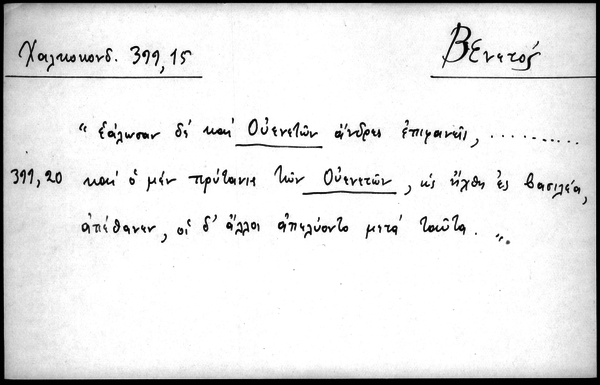 Χαλκοκονδ. 399,15
Βενετός
“ ἑάλωσαν δὲ καὶ Οὐενετῶν ἄνδρες ἐπιφανεῖς, ..........
399,20 καὶ ὁ μὲν πρύτανις τῶν Οὐενετῶν, ὡς ἤχθη ἐς βασιλέα,
ἀπέθανεν, οἱ δ' ἄλλοι ἀπελύοντο μετὰ ταῦτα. „.